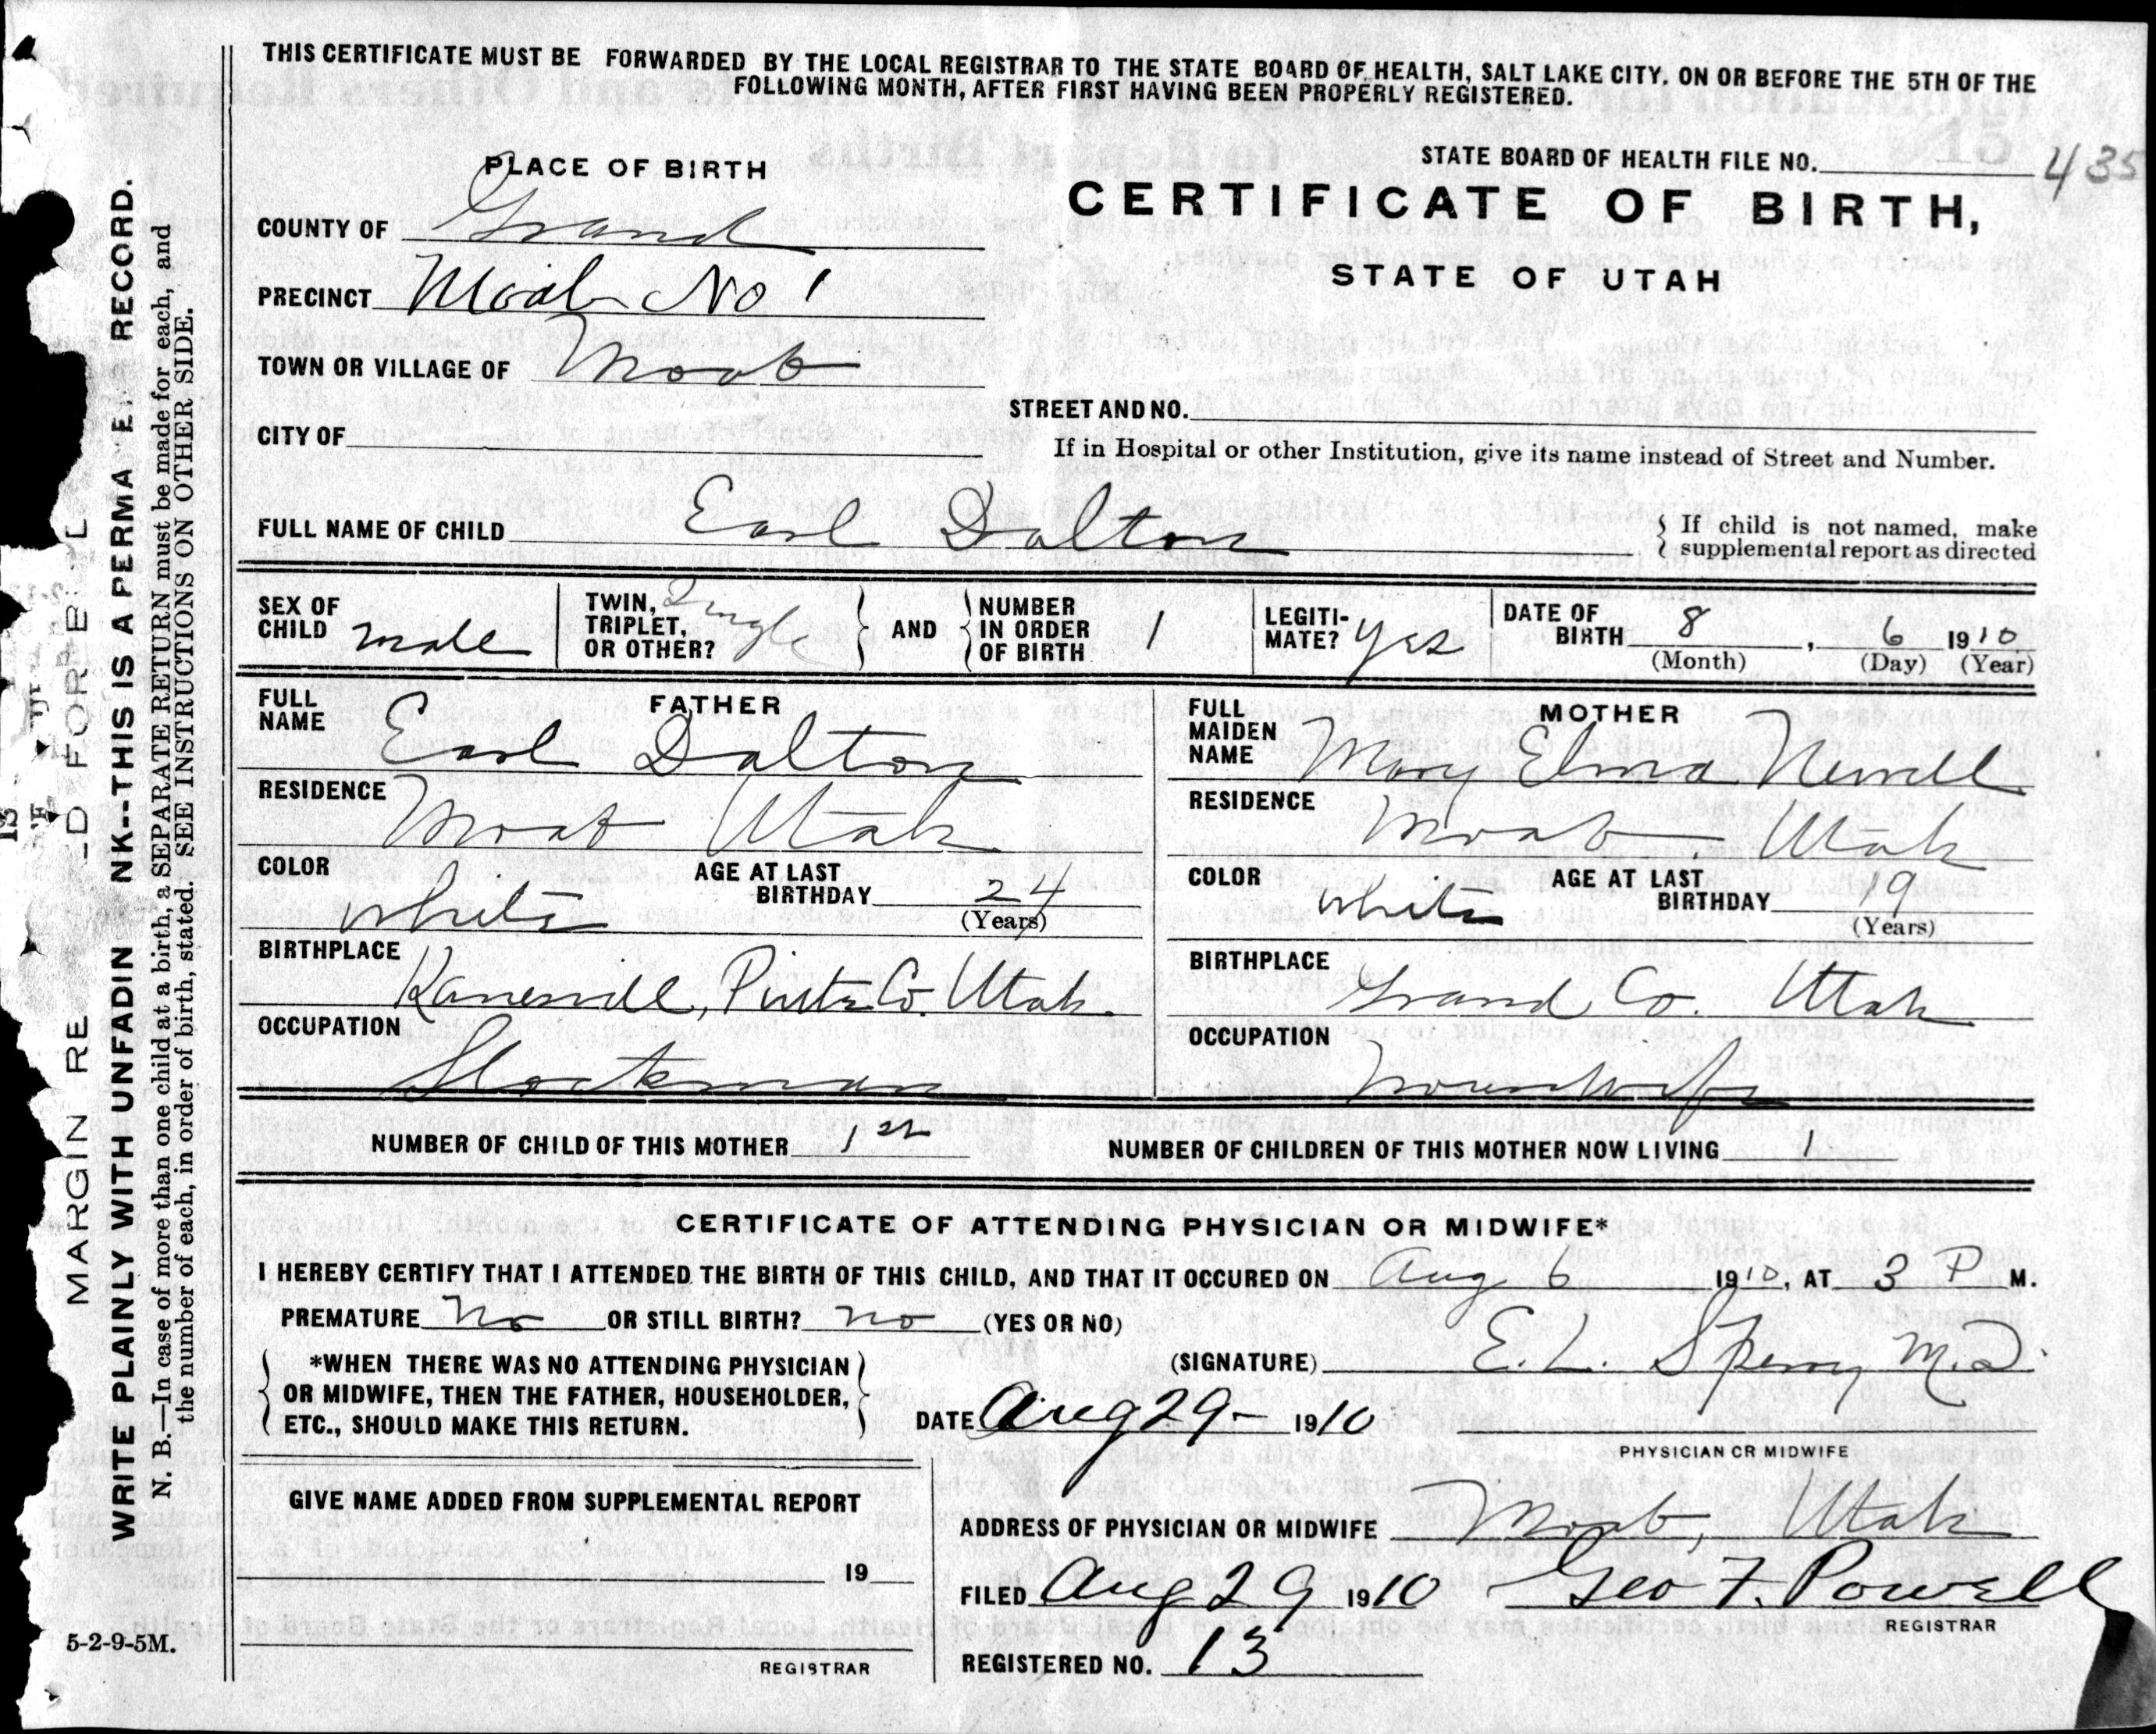 THIS CERTIFICATE MUST BE FORWARDED BY THE LOCAL REGISTRAR TO THE STATE BOARD OF HEALTH, SALT LAKE CITY, ON OR BEFORE THE 5TH OF THE
FOLLOWING MONTH, AFTER FIRST HAVING BEEN PROPERLY REGISTERED.
STATE BOARD OF HEALTH FILE NO. 435
PLACE OF BIRTH
CERTIFICATE OF BIRTH,
STATE OF UTAH
COUNTY OF Grand
PRECINCT Moab No 1
TOWN OR VILLAGE OF Moab
STREET AND NO.
CITY OF
If in Hospital or other Institution, give its name instead of Street and Number.
FULL NAME OF CHILD Earl Dalton
If child is not named, make
supplemental report as directed
SEX OF CHILD male
TWIN, TRIPLET, OR OTHER? Single
AND
NUMBER IN ORDER OF BIRTH 1
LEGITIMATE? yes
DATE OF BIRTH 8, 6 1910
(Month) (Day) (Year)
FATHER
FULL NAME Earl Dalton
RESIDENCE Moab Utah
COLOR white
AGE AT LAST BIRTHDAY 24
(Years)
BIRTHPLACE , Co. Utah.
OCCUPATION Stockman
MOTHER
FULL MAIDEN NAME Mary Elma Newell
RESIDENCE Moab. Utah
COLOR white
AGE AT LAST BIRTHDAY 19
(Years)
BIRTHPLACE Grand Co. Utah
OCCUPATION Housewife
NUMBER OF CHILD OF THIS MOTHER 1st
NUMBER OF CHILDREN OF THIS MOTHER NOW LIVING 1
CERTIFICATE OF ATTENDING PHYSICIAN OR MIDWIFE*
I HEREBY CERTIFY THAT I ATTENDED THE BIRTH OF THIS CHILD, AND THAT IT OCCURED ON Aug 6 1910, AT 3 P M.
PREMATURE No OR STILL BIRTH? no (YES OR NO)
*WHEN THERE WAS NO ATTENDING PHYSICIAN
OR MIDWIFE, THEN THE FATHER, HOUSEHOLDER,
ETC., SHOULD MAKE THIS RETURN.
(SIGNATURE) E. L. Sperry M.D.
DATE Aug 29- 1910
PHYSICIAN OR MIDWIFE
GIVE NAME ADDED FROM SUPPLEMENTAL REPORT
19
REGISTRAR
ADDRESS OF PHYSICIAN OR MIDWIFE Moab, Utah
FILED Aug 29 1910 Geo F. Powell
REGISTRAR
REGISTERED NO. 13
5-2-9-5M.
MARGIN RE D FOR B
WRITE PLAINLY WITH UNFADIN NK--THIS IS A PERMA E RECORD.
N. B.—In case of more than one child at a birth, a SEPARATE RETURN must be made for each, and
the number of each, in order of birth, stated. SEE INSTRUCTIONS ON OTHER SIDE.